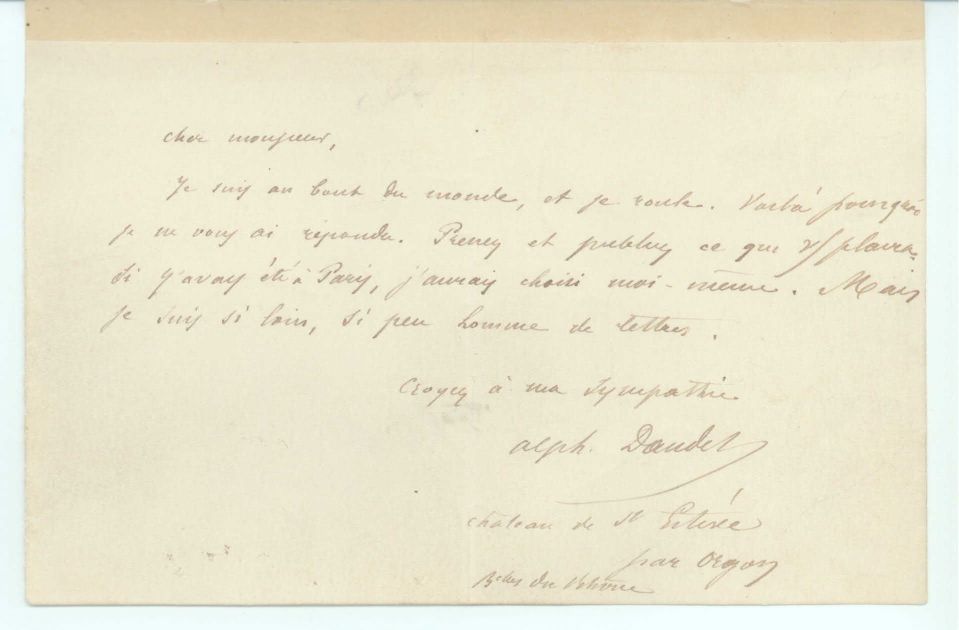 cher monsieur,
Je suis au bout du monde, et je route. Voilà pourquoi
je ne vous ai répondu. Prenez et publiez ce que vs plaira.
Si j'avais été à Paris, j'aurais choisi moi-même. Mais
je suis si loin, si peu homme de lettres.
Croyez à ma sympathie
Alph. Daudet
château de St Estève
par Orgon
Bches du Rhône